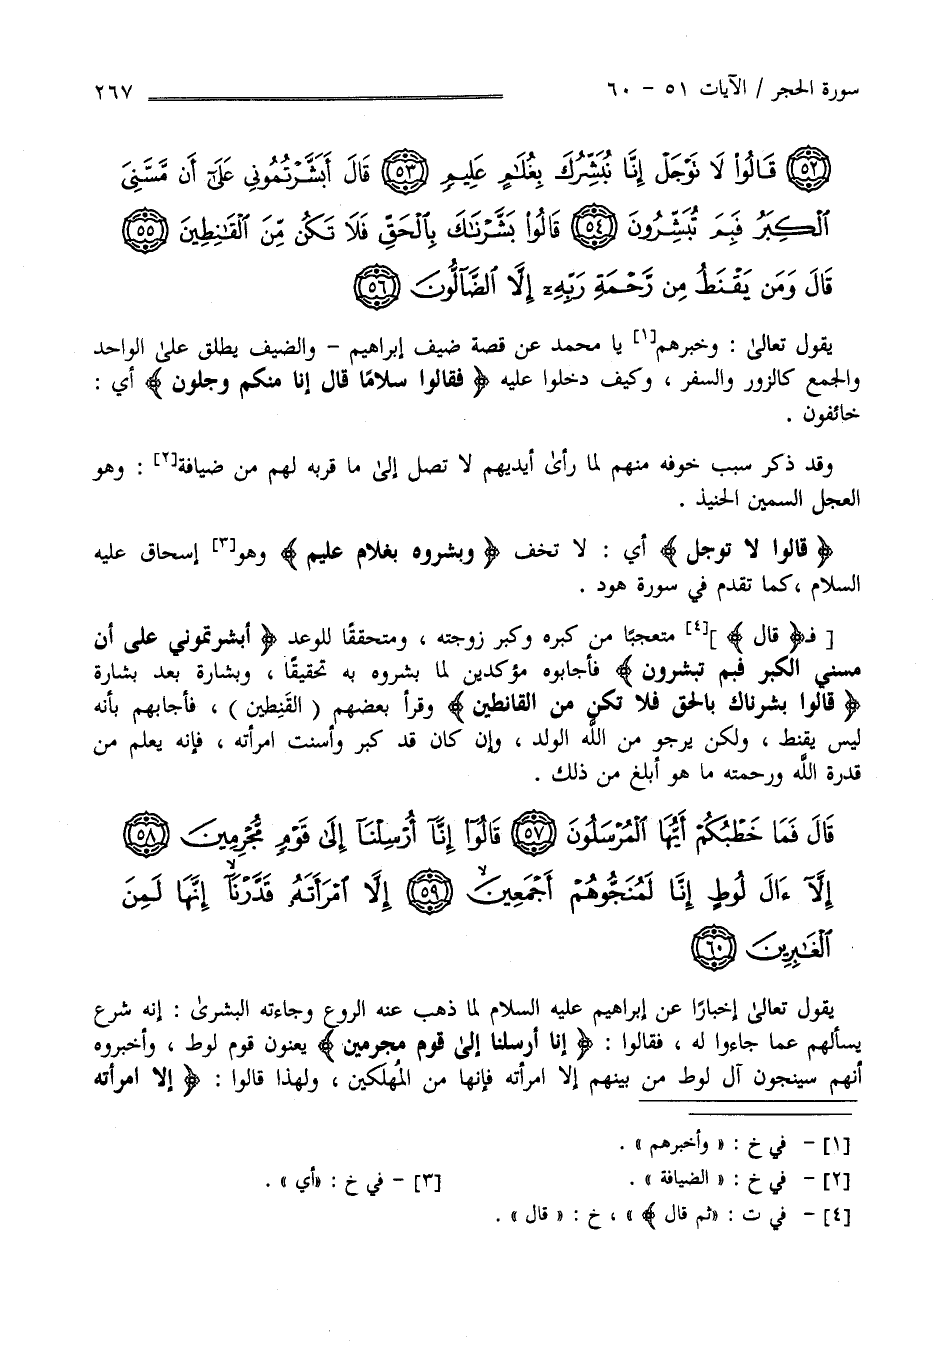 سورة الحجر / الآيات ٥١ - ٦٠ ٢٦٧
﴿٥٢﴾ قَالُوا۟ لَا تَوْجَلْ إِنَّا نُبَشِّرُكَ بِغُلَٰمٍ عَلِيمٍ ﴿٥٣﴾ قَالَ أَبَشَّرْتُمُونِى عَلَىٰٓ أَن مَّسَّنِىَ
ٱلْكِبَرُ فَبِمَ تُبَشِّرُونَ ﴿٥٤﴾ قَالُوا۟ بَشَّرْنَٰكَ بِٱلْحَقِّ فَلَا تَكُن مِّنَ ٱلْقَٰنِطِينَ ﴿٥٥﴾
قَالَ وَمَن يَقْنَطُ مِن رَّحْمَةِ رَبِّهِۦٓ إِلَّا ٱلضَّآلُّونَ ﴿٥٦﴾
يقول تعالىٰ : وخبرهم[١] يا محمد عن قصة ضيف إبراهيم - والضيف يطلق علىٰ الواحد
والجمع كالزور والسفر ، وكيف دخلوا عليه ﴿ فقالوا سلامًا قال إنا منكم وجلون ﴾ أي :
خائفون .
وقد ذكر سبب خوفه منهم لما رأىٰ أيديهم لا تصل إلىٰ ما قربه لهم من ضيافة[٢] : وهو
العجل السمين الحنيذ .
﴿ قالوا لا توجل ﴾ أي : لا تخف ﴿ وبشروه بغلام عليم ﴾ وهو[٣] إسحاق عليه
السلام ،كما تقدم في سورة هود .
[ فـ﴿ قال ﴾ ][٤] متعجبًا من كبره وكبر زوجته ، ومتحققًا للوعد ﴿ أبشرتموني على أن
مسني الكبر فبم تبشرون ﴾ فأجابوه مؤكدين لما بشروه به تحقيقًا ، وبشارة بعد بشارة
﴿ قالوا بشرناك بالحق فلا تكن من القانطين ﴾ وقرأ بعضهم ( القَنِطين ) ، فأجابهم بأنه
ليس يقنط ، ولكن يرجو من اللَّه الولد ، وإن كان قد كبر وأسنت امرأته ، فإنه يعلم من
قدرة اللَّه ورحمته ما هو أبلغ من ذلك .
قَالَ فَمَا خَطْبُكُمْ أَيُّهَا ٱلْمُرْسَلُونَ ﴿٥٧﴾ قَالُوٓا۟ إِنَّآ أُرْسِلْنَآ إِلَىٰ قَوْمٍ مُّجْرِمِينَ ﴿٥٨﴾
إِلَّآ ءَالَ لُوطٍ إِنَّا لَمُنَجُّوهُمْ أَجْمَعِينَ ﴿٥٩﴾ إِلَّا ٱمْرَأَتَهُۥ قَدَّرْنَآ إِنَّهَا لَمِنَ
ٱلْغَٰبِرِينَ ﴿٦٠﴾
يقول تعالىٰ إخبارًا عن إبراهيم عليه السلام لما ذهب عنه الروع وجاءته البشرىٰ : إنه شرع
يسألهم عما جاءوا له ، فقالوا : ﴿ إنا أرسلنا إلىٰ قوم مجرمين ﴾ يعنون قوم لوط ، وأخبروه
أنهم سينجون آل لوط من بينهم إلا امرأته فإنها من المُهلَكين ، ولهذا قالوا : ﴿ إلا امرأته
[١] - في خ : « وأخبرهم » .
[٢] - في خ : « الضيافة » . [٣] - في خ : «أي » .
[٤] - في ت : «ثم قال ﴾ » ، خ : « قال » .